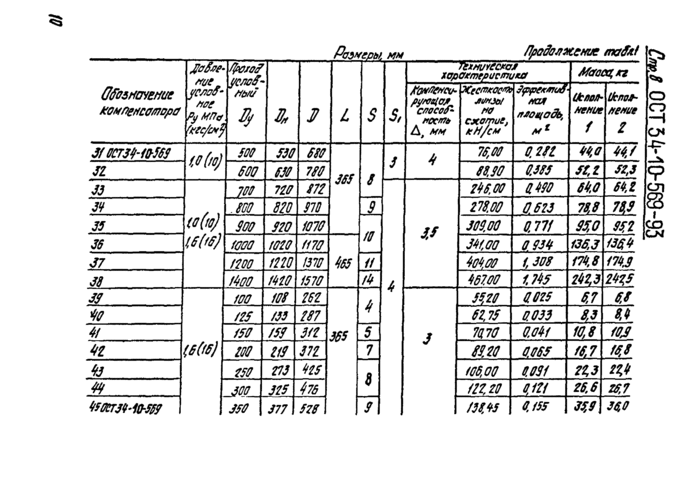 10
Стр. 8 ОСТ 34-10-569-93
Размеры, мм Продолжение табл. 1
Обозначение компенсатора | Давление условное Ру МПа (кгс/см²) | Проход условный Dу | Dн | D | L | S | S₁ | Техническая характеристика | Масса, кг
Компенсирующая способность Δ, мм | Жесткость линзы на сжатие, кН/см | Эффективная площадь, м² | Исполнение 1 | Исполнение 2
31 ОСТ34-10-569 | 1,0 (10) | 500 | 530 | 680 | 365 | 8 | 3 | 4 | 76,00 | 0,282 | 44,0 | 44,1
32 | 600 | 630 | 780 | 88,90 | 0,385 | 52,2 | 52,3
33 | 1,0 (10) 1,6 (16) | 700 | 720 | 872 | 4 | 3,5 | 246,00 | 0,490 | 64,0 | 64,2
34 | 800 | 820 | 970 | 9 | 278,00 | 0,623 | 78,8 | 78,9
35 | 900 | 920 | 1070 | 10 | 309,00 | 0,771 | 95,0 | 95,2
36 | 1000 | 1020 | 1170 | 465 | 341,00 | 0,934 | 136,3 | 136,4
37 | 1200 | 1220 | 1370 | 11 | 404,00 | 1,308 | 174,8 | 174,9
38 | 1400 | 1420 | 1570 | 14 | 467,00 | 1,745 | 242,3 | 242,5
39 | 1,6 (16) | 100 | 108 | 262 | 365 | 4 | 3 | 55,20 | 0,025 | 6,7 | 6,8
40 | 125 | 133 | 287 | 62,75 | 0,033 | 8,3 | 8,4
41 | 150 | 159 | 312 | 5 | 70,70 | 0,041 | 10,8 | 10,9
42 | 200 | 219 | 372 | 7 | 89,20 | 0,065 | 16,7 | 16,8
43 | 250 | 273 | 425 | 8 | 106,00 | 0,091 | 22,3 | 22,4
44 | 300 | 325 | 476 | 122,20 | 0,121 | 26,6 | 26,7
45 ОСТ34-10-569 | 350 | 377 | 528 | 9 | 138,45 | 0,155 | 35,9 | 36,0